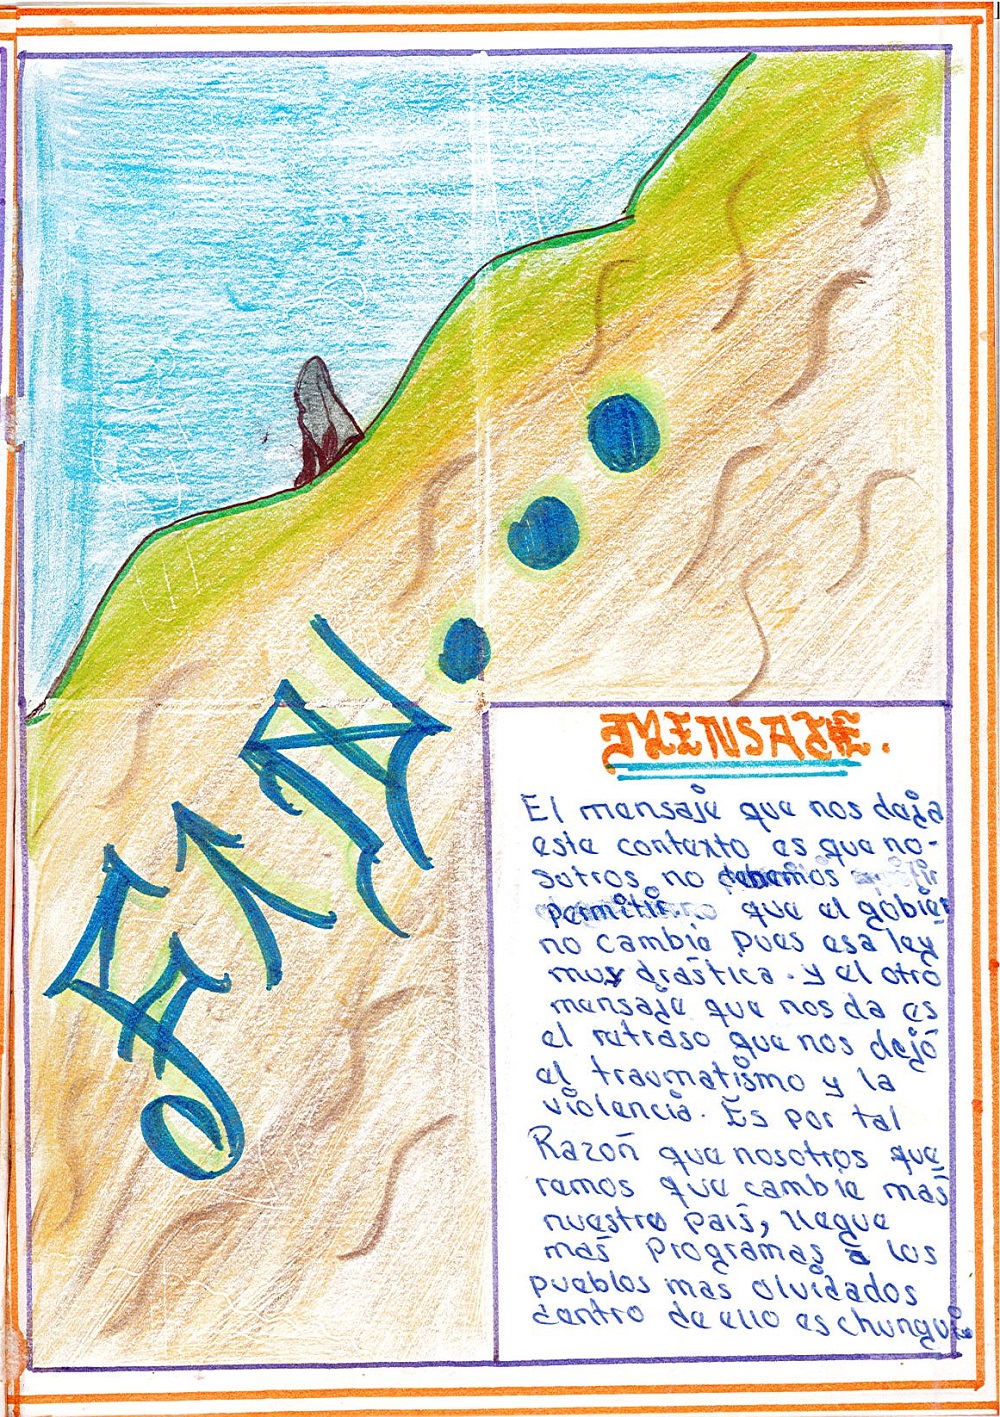 FIN...
MENSAJE.
El mensaje que nos deja
este contexto es que no-
sotros no debemos
permitir que el gobier
no cambie pues esa ley
muy drástica. y el otro
mensaje que nos da es
el retraso que nos dejó
el traumatismo y la
violencia. Es por tal
Razoñ que nosotros que
remos que cambie mas̃
nuestro país, llegue
mas̃ programas a los
pueblos mas olvidados
dentro de ello es chungui